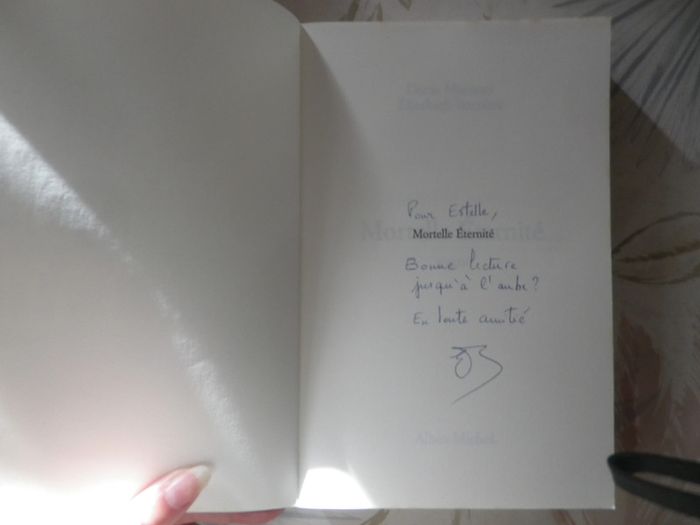 Pour Estelle,
Mortelle Éternité
Bonne lecture
jusqu'à l'aube ?
En toute amitié
Albin Michel